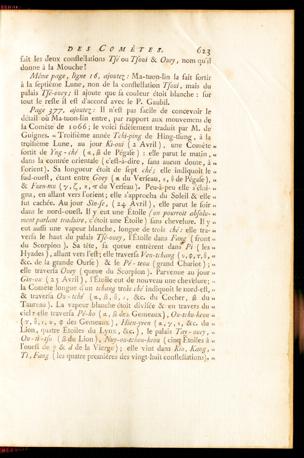 DES COMÈTES. 623
fait les deux constellations Tsé ou Tsoui & Ouey, nom qu'il
donne à la Mouche!
Même page, ligne 16, ajoutez: Ma-tuon-lin la fait sortir
à la septième Lune, non de la constellation Tsoui, mais du
palais Tsé-ouey; il ajoute que sa couleur étoit blanche: sur
tout le reste il est d'accord avec le P. Gaubil.
Page 377, ajoutez: Il n'est pas facile de concevoir le
détail où Ma-tuon-lin entre, par rapport aux mouvemens de
la Comète de 1066; le voici fidèlement traduit par M. de
Guignes. « Troisième année Tchi-ping de Hing-tsung, à la
troisième Lune, au jour Ki-oui (2 Avril), une Comète «
sortit de Yng-ché (α, β de Pégase); elle parut le matin, «
dans la contrée orientale (c'est-à-dire, sans aucun doute, à «
l'orient). Sa longueur étoit de sept ché; elle indiquoit le «
sud-ouest, étant entre Goey (α du Verseau, ε, θ de Pégase), «
& Fuen-mu (γ, ζ, η, π du Verseau). Peu-à-peu elle s'éloi- «
gna, en allant vers l'orient; elle s'approcha du Soleil & elle «
fut cachée. Au jour Sin-se, (24 Avril), elle parut le soir «
dans le nord-ouest. Il y eut une Étoile (on pourroit absolu- «
ment parlant traduire, c'étoit une Étoile) sans chevelure. Il y «
eut aussi une vapeur blanche, longue de trois ché: elle tra- «
versa le haut du palais Tsé-ouey, l'Étoile dans Fang (front «
du Scorpion). Sa tête, sa queue entrèrent dans Pi (les «
Hyades), allant vers l'est; elle traversa Ven-tchang
&c. de la grande Ourse) & le Pé-teou (grand Chariot); «
elle traversa Ouey (queue du Scorpion). Parvenue au jour «
(25 Avril), l'Étoile eut de nouveau une chevelure; «
la Comète longue d'un tchang trois ché indiquoit le nord-est, «
& traversa Ou-tché &c. du Cocher, β du «
Taureau). La vapeur blanche étoit divisée & en travers du «
ciel: elle traversa Pé-ho (α, β des Gémeaux), Ou-tchu-heou «
des Gémeaux), Hien-yuen (α, γ, ε, &c. du «
Lion, quatre Étoiles du Lynx, &c.), le palais Tay-ouey, «
Ou-ti-tso (β du Lion), Nuy-ou-tchou-heou (cinq Étoiles à «
l'ouest de & d de la Vierge); elle vint dans Kio, Kang, «
Ti, Fang (les quatre premières des vingt-huit constellations). «